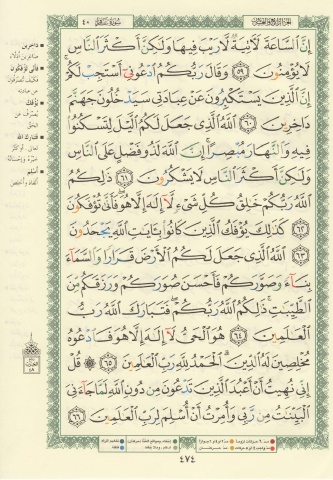 الجزء الرابع والعشرون
سورة غافر ٤٠
إِنَّ السَّاعَةَ لَآتِيَةٌ لَّا رَيْبَ فِيهَا وَلَٰكِنَّ أَكْثَرَ النَّاسِ
لَا يُؤْمِنُونَ ٥٩ وَقَالَ رَبُّكُمُ ادْعُونِي أَسْتَجِبْ لَكُمْ
إِنَّ الَّذِينَ يَسْتَكْبِرُونَ عَنْ عِبَادَتِي سَيَدْخُلُونَ جَهَنَّمَ
دَاخِرِينَ ٦٠ اللَّهُ الَّذِي جَعَلَ لَكُمُ اللَّيْلَ لِتَسْكُنُوا
فِيهِ وَالنَّهَارَ مُبْصِرًا إِنَّ اللَّهَ لَذُو فَضْلٍ عَلَى النَّاسِ
وَلَٰكِنَّ أَكْثَرَ النَّاسِ لَا يَشْكُرُونَ ٦١ ذَٰلِكُمُ
اللَّهُ رَبُّكُمْ خَالِقُ كُلِّ شَيْءٍ لَّا إِلَٰهَ إِلَّا هُوَ فَأَنَّىٰ تُؤْفَكُونَ
٦٢ كَذَٰلِكَ يُؤْفَكُ الَّذِينَ كَانُوا بِآيَاتِ اللَّهِ يَجْحَدُونَ
٦٣ اللَّهُ الَّذِي جَعَلَ لَكُمُ الْأَرْضَ قَرَارًا وَالسَّمَاءَ
بِنَاءً وَصَوَّرَكُمْ فَأَحْسَنَ صُوَرَكُمْ وَرَزَقَكُم مِّنَ
الطَّيِّبَاتِ ذَٰلِكُمُ اللَّهُ رَبُّكُمْ فَتَبَارَكَ اللَّهُ رَبُّ
الْعَالَمِينَ ٦٤ هُوَ الْحَيُّ لَا إِلَٰهَ إِلَّا هُوَ فَادْعُوهُ
مُخْلِصِينَ لَهُ الدِّينَ الْحَمْدُ لِلَّهِ رَبِّ الْعَالَمِينَ ٦٥ قُلْ
إِنِّي نُهِيتُ أَنْ أَعْبُدَ الَّذِينَ تَدْعُونَ مِن دُونِ اللَّهِ لَمَّا جَاءَنِيَ
الْبَيِّنَاتُ مِن رَّبِّي وَأُمِرْتُ أَنْ أُسْلِمَ لِرَبِّ الْعَالَمِينَ ٦٦
داخرين
صاغرين أذلاء
فأنى تؤفكون
فكيف تصرفون
عن عبادته
يؤفك
يصرف عن
الحق
فتبارك الله
أسلم
أنقاد وأخلص
٤٧٤